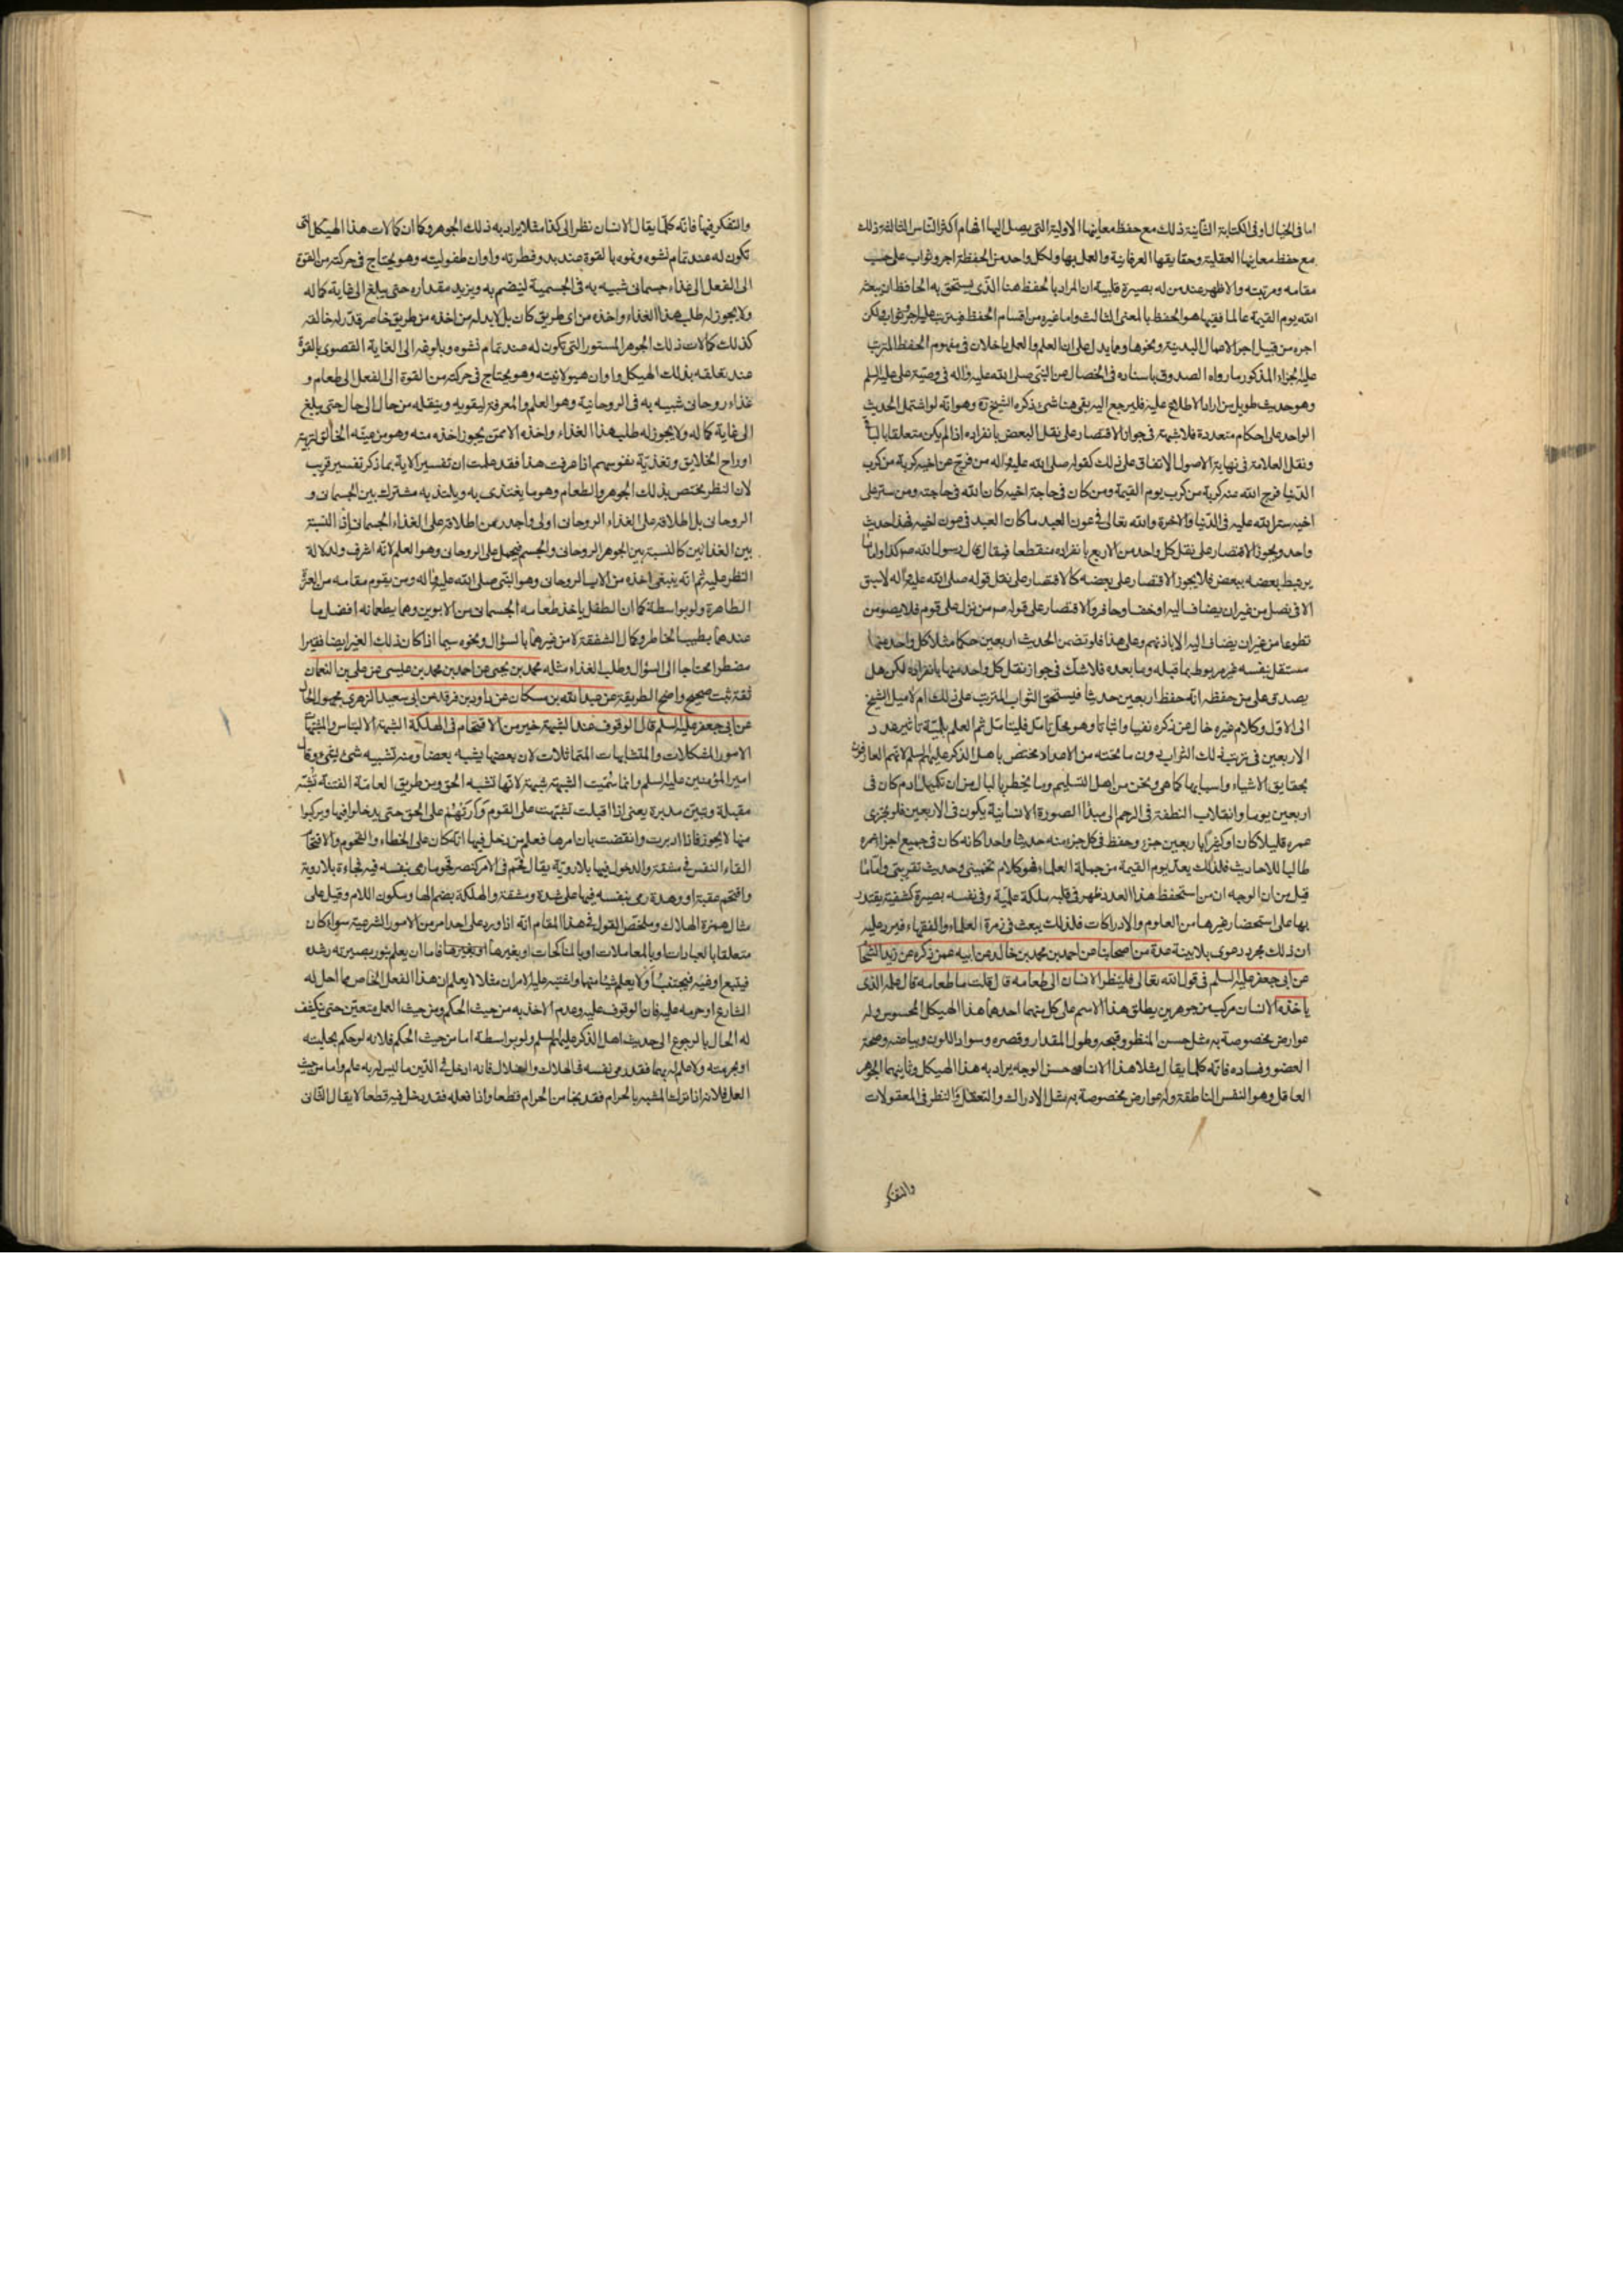 اما فى الخيال او فى الكتابة الثانية ذلك مع حفظ معانيها الاولية التى يصل اليها افهام اكثر الناس الثالثة ذلك
مع حفظ معانيها العقلية وحقايقها العرفانية والعمل بها ولكل واحد من الحفظة اجر وثواب على حسب
مقامه ومرتبته والاظهر عند من له بصيرة قلبية ان المراد بالحفظ هنا الذى يستحق به الحافظ ان يبعثه
الله يوم القيمة عالما فقيها هو الحفظ بالمعنى الثالث واما غيره من اقسام الحفظ فيترتب عليه اجر وثواب ولكن
اجره من قبيل اجر الاعمال البدنية ونحوها ومما يدل على ان العلم والعمل داخلان فى مفهوم الحفظ المترتب
عليه الجزاء المذكور ما رواه الصدوق باسناده فى الخصال عن النبى صلى الله عليه واله فى وصية على عليه السلم
وهو حديث طويل من اراد الاطلاع عليه فليرجع اليه بقى هنا شئ ذكره الشيخ ره وهو انه لو اشتمل الحديث
الواحد على احكام متعددة فلا شبهة فى جواز الاقتصار على نقل البعض بانفراده اذا لم يكن متعلقا بالباقى
ونقل العلامة فى نهاية الاصول الاتفاق على ذلك كقوله صلى الله عليه واله من فرج عن اخيه كربة من كرب
الدنيا فرج الله عنه كربة من كرب يوم القيمة ومن كان فى حاجة اخيه كان الله فى حاجته ومن ستر على
اخيه ستر الله عليه فى الدنيا والاخرة والله تعالى فى عون العبد ما كان العبد فى عون اخيه فهذا حديث
واحد ويجوز الاقتصار على نقل كل واحد من الاربع بانفراده منقطعا فيقال قال رسول الله صم كذا واما ما
يرتبط بعضه ببعض فلا يجوز الاقتصار على بعضه كالاقتصار على نقل قوله صلى الله عليه واله لا سبق
الا فى نصل من غير ان يضاف اليه او خف او حافر والاقتصار على قوله صم من نزل على قوم فلا يصومن
تطوعا من غير ان يضاف اليه الا باذنهم وعلى هذا فلو تضمن الحديث اربعين حكما مثلا كل واحد منها
مستقل بنفسه غير مربوط بما قبله وما بعده فلا شك فى جواز نقل كل واحد منها بانفراده لكن هل
يصدق على من حفظه انه حفظ اربعين حديثا فيستحق الثواب المترتب على ذلك ام لا ميل الشيخ
الى الاول وكلام غيره خال عن ذكره نفيا واثباتا وهو محل تامل فليتامل ثم العلم بلمية تاثير عدد
الاربعين فى ترتب ذلك الثواب دون ما تحته من الاعداد مختص باهل الذكر عليهم السلم لانهم العارفون
بحقايق الاشياء واسبابها كما هى ونحن من اهل التسليم وما يخطر بالبال من ان تكميل ادم كان فى
اربعين يوما وانقلاب النطفة فى الرحم الى مبدأ الصورة الانسانية يكون فى الاربعين فلو تجزى
عمره قليلا كان او كثيرا باربعين جزء وحفظ فى كل جزء منه حديثا واحدا كانه كان فى جميع اجزاء عمره
طالبا للاحاديث فلذلك يعد يوم القيمة من جملة العلماء فهو كلام تخمينى وحديث تقريبى واما ما
قيل من ان الوجه ان من استحفظ هذا العدد ظهر فى قلبه ملكة علمية وفى نفسه بصيرة كشفية يقتدر
بها على استحضار غيرها من العلوم والادراكات فلذلك يبعث فى زمرة العلماء والفقهاء فيرد عليه
ان ذلك مجرد دعوى بلا بينة عدة من اصحابنا عن احمد بن محمد بن خالد عن ابيه عمن ذكره عن زيد الشحام
عن ابى جعفر عليه السلم فى قول الله تعالى فلينظر الانسان الى طعامه قال قلت ما طعامه قال علمه الذى
ياخذه الانسان مركب من جوهرين يطلق هذا الاسم على كل منهما احدهما هذا الهيكل المحسوس وله
عوارض مخصوصة به مثل حسن المنظر وقبحه وطول المقدار وقصره وسواد اللون وبياضه وصحة
العضو وفساده فانه كلما يقال مثلا هذا الانسان حسن الوجه يراد به هذا الهيكل وثانيهما الجوهر
العاقل وهو النفس الناطقة وله عوارض مخصوصة به مثل الادراك والتعقل والنظر فى المعقولات
والتفكر
والتفكر فيها فانه كلما يقال الانسان نظر الى كذا مثلا يراد به ذلك الجوهر وكما ان كمالات هذا الهيكل التى
تكون له عند تمام نشوه ونموه بالقوة عند بدو فطرته واوان طفوليته وهو يحتاج فى حركته من القوة
الى الفعل الى غذاء جسمانى شبيه به فى الجسمية لينضم به ويزيد مقداره حتى يبلغ الى غاية كماله
ولا يجوز له طلب هذا الغذاء واخذه من اى طريق كان بل لابد له من اخذه من طريق خاص قدر له خالقه
كذلك كمالات ذلك الجوهر المستور التى تكون له عند تمام نشوه وبلوغه الى الغاية القصوى بالقوة
عند تعلقه بذلك الهيكل واوان هيولانيته وهو يحتاج فى حركته من القوة الى الفعل الى طعام و
غذاء روحانى شبيه به فى الروحانية وهو العلم والمعرفة ليقويه وينقله من حال الى حال حتى يبلغ
الى غاية كماله ولا يجوز له طلب هذا الغذاء واخذه الا ممن يجوز اخذه منه وهو من عينه الخالق لتربية
ارواح الخلايق وتغذية نفوسهم اذا عرفت هذا فقد علمت ان تفسير الاية بما ذكر تفسير قريب
لان النظر مختص بذلك الجوهر والطعام وهو ما يغتذى به ويلتذ به مشترك بين الجسمانى و
الروحانى بل اطلاقه على الغذاء الروحانى اولى واجدر من اطلاقه على الغذاء الجسمانى اذ النسبة
بين الغذائين كالنسبة بين الجوهر الروحانى والجسم فيحمل على الروحانى وهو العلم لانه اشرف ولدلالة
النظر عليه ثم انه ينبغى اخذه من الاب الروحانى وهو النبى صلى الله عليه واله ومن يقوم مقامه من العترة
الطاهرة ولو بواسطة كما ان الطفل ياخذ طعامه الجسمانى من الابوين وهما يطعمانه افضل ما
عندهما بطيب الخاطر وكمال الشفقة لا من غيرهما بالسؤال ونحوه سيما اذا كان ذلك الغير ايضا فقيرا
مضطرا محتاجا الى السؤال وطلب الغذاء مثله محمد بن يحيى عن احمد بن محمد بن عيسى عن على بن النعمان
ثقة ثبت صحيح واضح الطريقة عن عبد الله بن مسكان عن داود بن فرقد عن ابى سعيد الزهرى مجهول الحال
عن ابى جعفر عليه السلم قال الوقوف عند الشبهة خير من الاقتحام فى الهلكة الشبهة الالتباس والمشتبهات
الامور المشكلات والمتشابهات المتماثلات لان بعضها يشبه بعضا ومنه تشبيه شئ بشئ وقال
امير المؤمنين عليه السلم وانما سميت الشبهة شبهة لانها تشبه الحق ومن طريق العامة الفتنة تشبه
مقبلة وتبين مدبرة يعنى اذا اقبلت تشبهت على القوم واركبتهم على الحق حتى يدخلوا فيها ويركبوا
منها ما لا يجوز فاذا ادبرت وانقضت بان امرها فعلم من دخل فيها انه كان على الخطاء والقحوم والاقتحام
القاء النفس فى مشقة والدخول فيها بلا روية يقال قحم فى الامر كنصر قحوما رمى بنفسه فيه فجاءة بلا روية
واقتحم عقبة او وهدة رمى بنفسه فيها على شدة ومشقة والهلكة بضم الهاء وسكون اللام وقيل على
مثال همزة الهلاك وملخص القول فى هذا المقام انه اذا ورد على احد امر من الامور الشرعية سواء كان
متعلقا بالعبادات او بالمعاملات او بالمناكحات او بغيرها فاما ان يعلم بنور بصيرته رشده
فيتبع او غيه فيجتنب او لا يعلم شيئا منها واشتبه عليه الامران مثلا لا يعلم ان هذا الفعل الخاص مما احل له
الشارع او حرمه عليه فان الوقوف عليه وعدم الاخذ به من حيث الحكم ومن حيث العمل متعين حتى يكشف
له الحال بالرجوع الى حديث اهل الذكر عليهم السلم ولو بواسطة اما من حيث الحكم فلانه لو حكم بحليته
او بحرمته ولا علم له بهما فقد رمى نفسه فى الهلاك والضلال فانه ادخل فى الدين ما ليس له به علم واما من حيث
العمل فلانه اذا ترك المشتبه بالحرام فقد نجا من الحرام قطعا واذا فعله فقد دخل فيه قطعا لا يقال الثانى